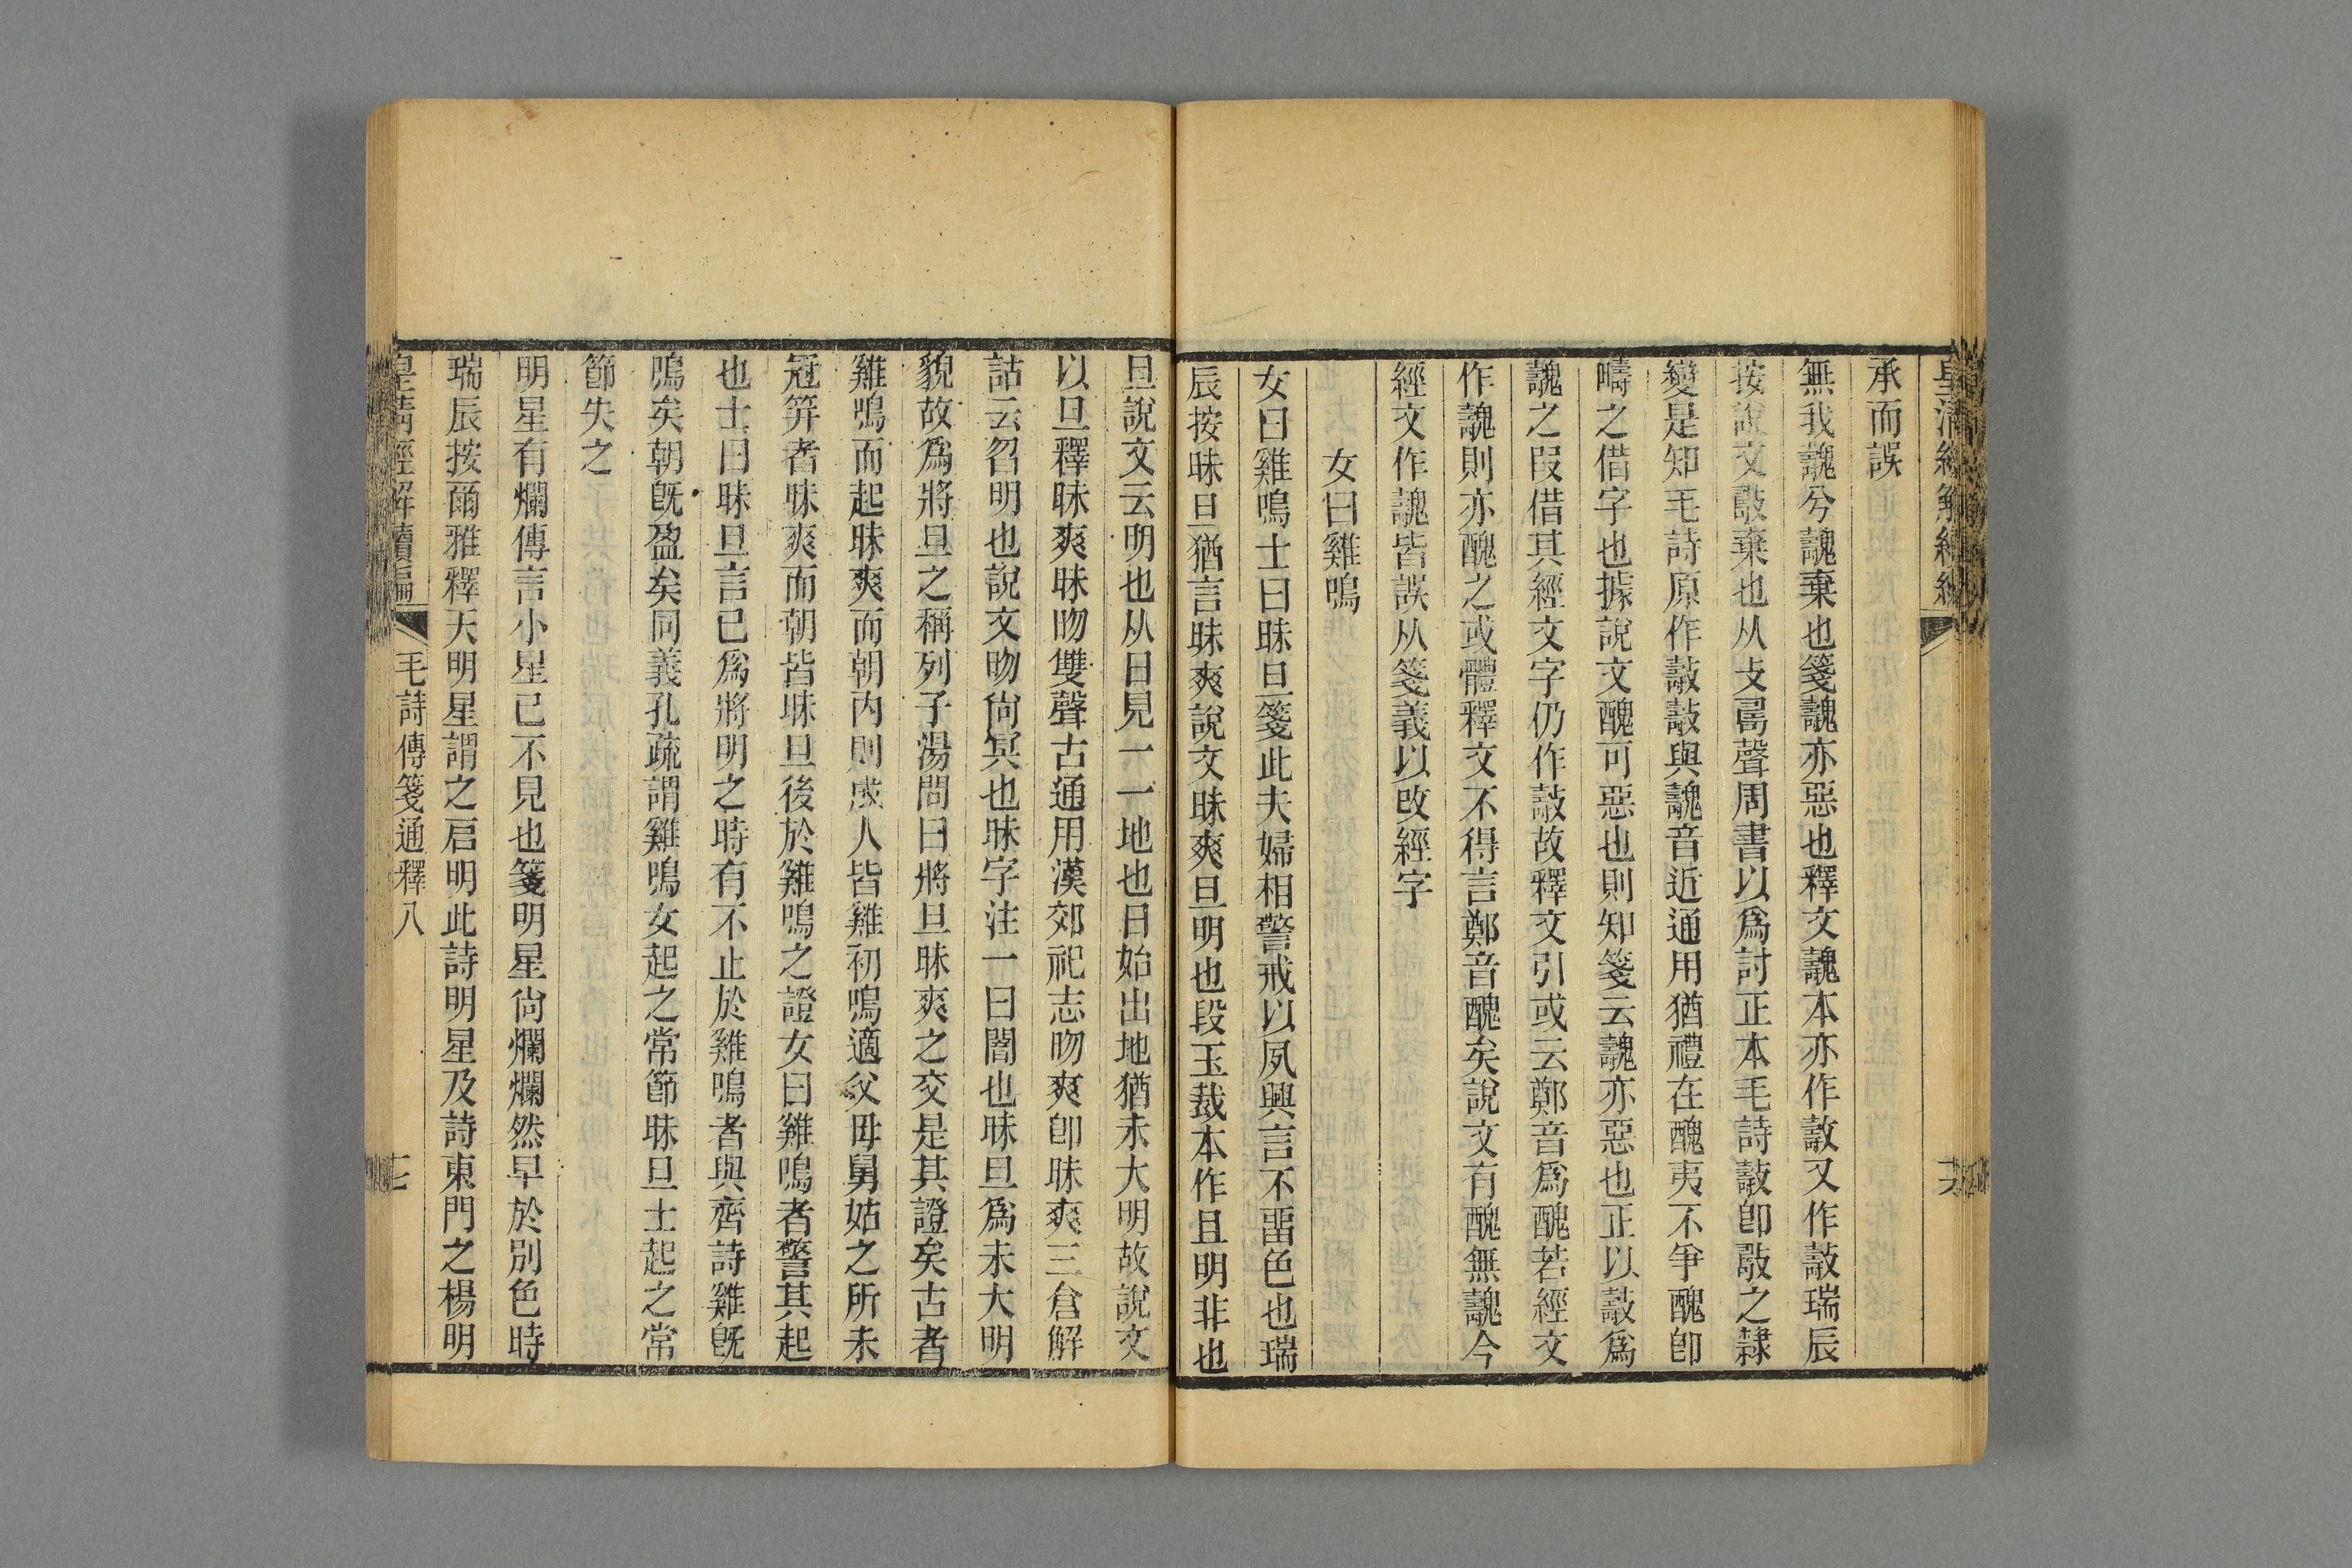 承而誤
無我䰩兮䰩棄也箋䰩亦惡也釋文䰩本亦作㪜又作𣀓瑞辰
按說文𢿢棄也从攴𠷎聲周書以爲討正本毛詩𣀓卽𢿢之隸
變是知毛詩原作𣀓𣀓與䰩音近通用猶禮在醜夷不爭醜卽
疇之借字也據說文醜可惡也則知箋云䰩亦惡也正以𣀓爲
䰩之叚借其經文字仍作𣀓故釋文引或云鄭音爲醜若經文
作䰩則亦醜之或體釋文不得言鄭音醜矣說文有醜無䰩今
經文作䰩皆誤从箋義以改經字
女曰雞鳴
女曰雞鳴士曰昧旦箋此夫婦相警戒以夙興言不畱色也瑞
辰按昧旦猶言昧爽說文昧爽旦明也段玉裁本作且明非也
旦說文云明也从日見一一地也日始出地猶未大明故說文
以旦釋昧爽昧吻雙聲古通用漢郊祀志吻爽卽昧爽三倉解
詁云曶明也說文吻尙冥也昧字注一曰闇也昧旦爲未大明
貌故爲將旦之稱列子湯問曰將旦昧爽之交是其證矣古者
雞鳴而起昧爽而朝內則成人皆雞初鳴適父母舅姑之所未
冠笄者昧爽而朝皆昧旦後於雞鳴之證女曰雞鳴者警其起
也士曰昧旦言已爲將明之時有不止於雞鳴者與齊詩雞旣
鳴矣朝旣盈矣同義孔疏謂雞鳴女起之常節昧旦士起之常
節失之
明星有爛傳言小星已不見也箋明星尙爛爛然早於別色時
瑞辰按爾雅釋天明星謂之启明此詩明星及詩東門之楊明
皇淸經解續編 毛詩傳箋通釋八